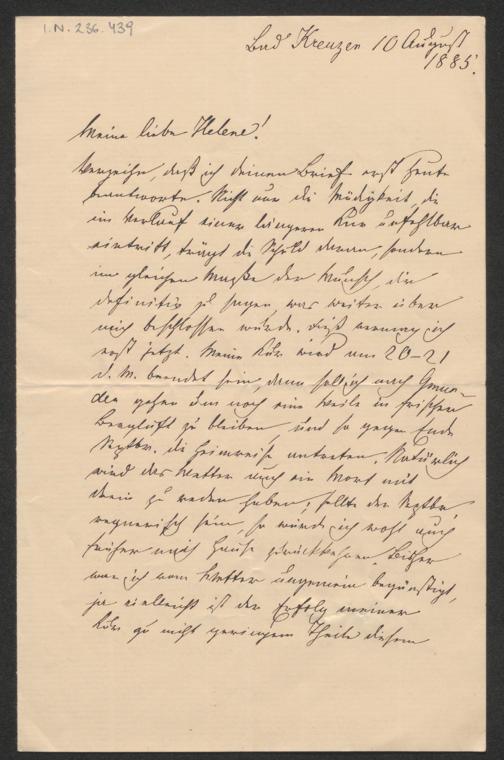 I.N. 236.439
Bad Kreuzen 10 August
1885.
Meine liebe Helene!
Verzeihe, daß ich deinen Brief erst heute
beantworte. Nicht nur die Müdigkeit, die
im Verlauf einer längeren Kur unfehlbar
eintritt, trägt die Schuld daran, sondern
im gleichen Maße der Wunsch, dir
definitiv zu sagen was weiter über
mich beschlossen würde. Dieß vermag ich
erst jetzt. Meine Kur wird am 20–21
d. M. beendet sein, dann soll ich nach Gmun-
den gehen um noch eine Weile in frischer
Bergluft zu bleiben, und so gegen Ende
Septbr. die Heimreise antreten. Natürlich
wird das Wetter auch ein Wort mit
drein zu reden haben, sollte der Septbr.
regnerisch sein, so würde ich wohl auch
früher nach Hause zurückkehren. Bisher
war ich vom Wetter ungemein begünstigt,
ja vielleicht ist der Erfolg meiner
Kur zu nicht geringem Theile diesem